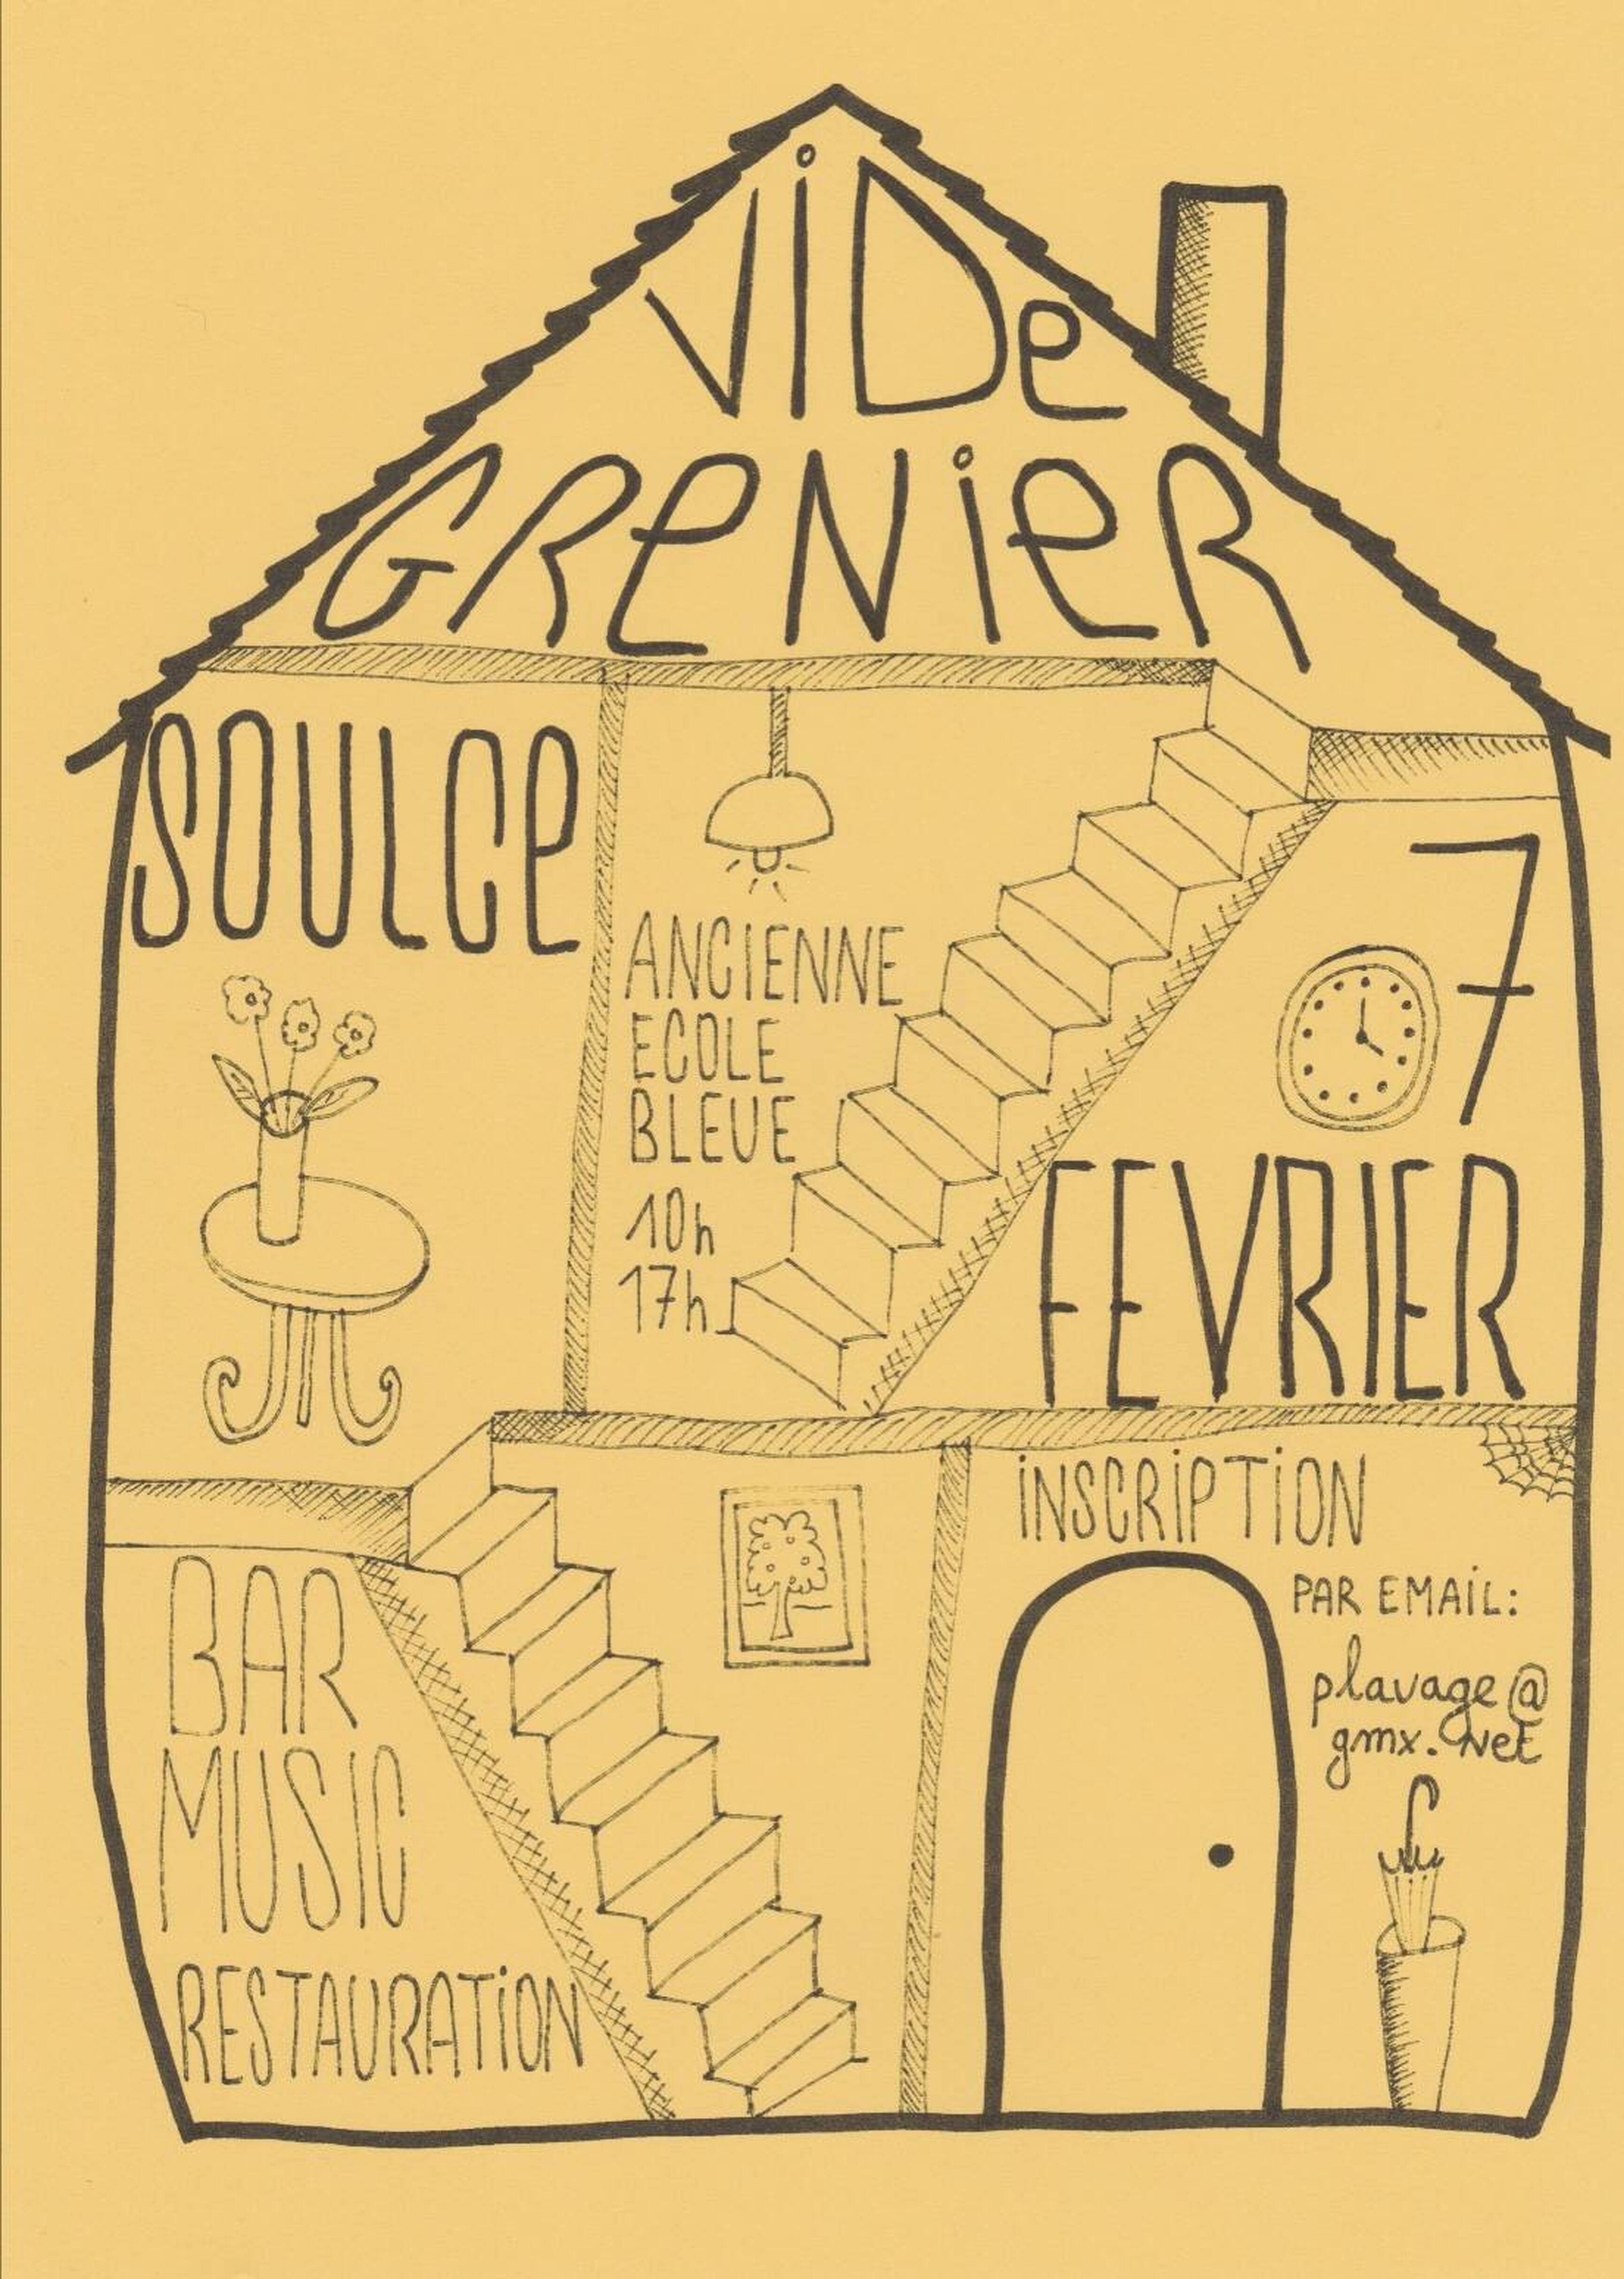 ViDe
GReNieR
SOULCe
ANCIENNE
ECOLE
BLEUE
10h
17h
7
FEVRIER
BAR
MUSIC
RESTAURATiON
iNSCRiPTiON
PAR EMAiL:
plavage@
gmx.net